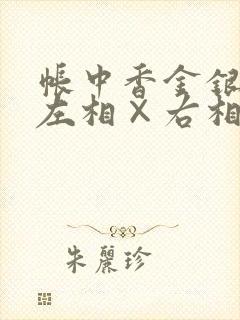 帳中香金銀
左相×右相
朱麗珍